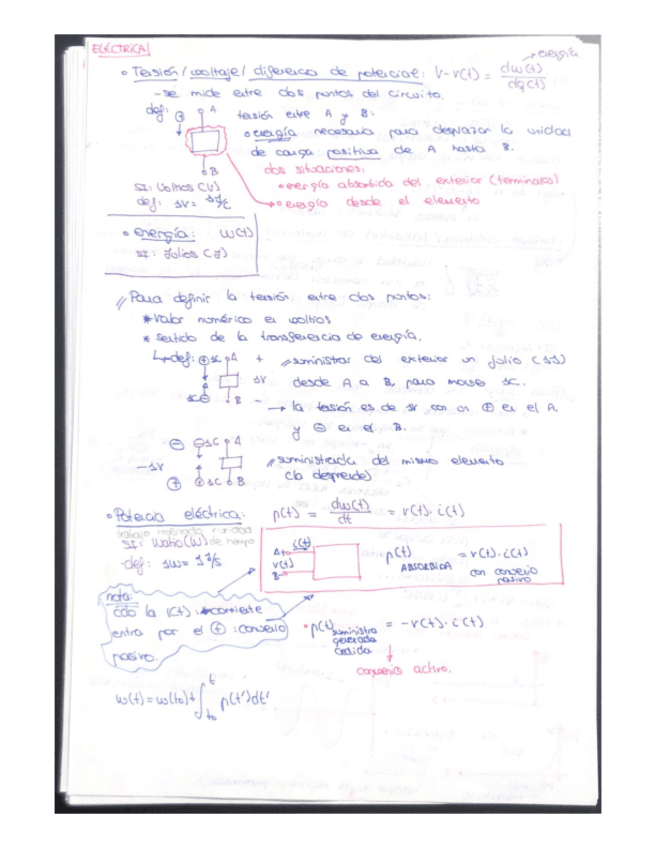 ELÉCTRICA
→ energía
• Tensión / voltaje / diferencia de potencial: V - v(t) = dw(t) / dq(t)
- se mide entre dos puntos del circuito.
def: + A tensión entre A y B:
• energía necesaria para desplazar la unidad
de carga positiva de A hasta B.
B dos situaciones:
SI: Voltios (V) • energía absorbida del exterior (terminales)
def: 1V = 1J/C • energía desde el elemento
• energía: w(t)
SI: Julios (J)
// Para definir la tensión entre dos puntos:
* valor numérico en voltios
* sentido de la transferencia de energía.
↳ def: + 1C A + // suministrar del exterior un julio (1J)
1V desde A a B, para mover 1C.
1C B - → la tensión es de 1V con un + en el A
y - en el B.
- 1C A
-1V // suministrada del mismo elemento
+ 1C B (la desprende)
• Potencia eléctrica: p(t) = dw(t) / dt = v(t) · i(t)
trabajo realizado x unidad
SI: Watio (W) de tiempo
def: 1W = 1 J/s
A+ i(t)
v(t)
B-
p(t) ABSORBIDA = v(t) · i(t)
con convenio pasivo
nota:
cdo la i(t): corriente
entra por el +: convenio
pasivo.
• p(t) suministra generada cedida = -v(t) · i(t)
↓
convenio activo.
w(t) = w(t₀) + ∫ t₀ t p(t') dt'